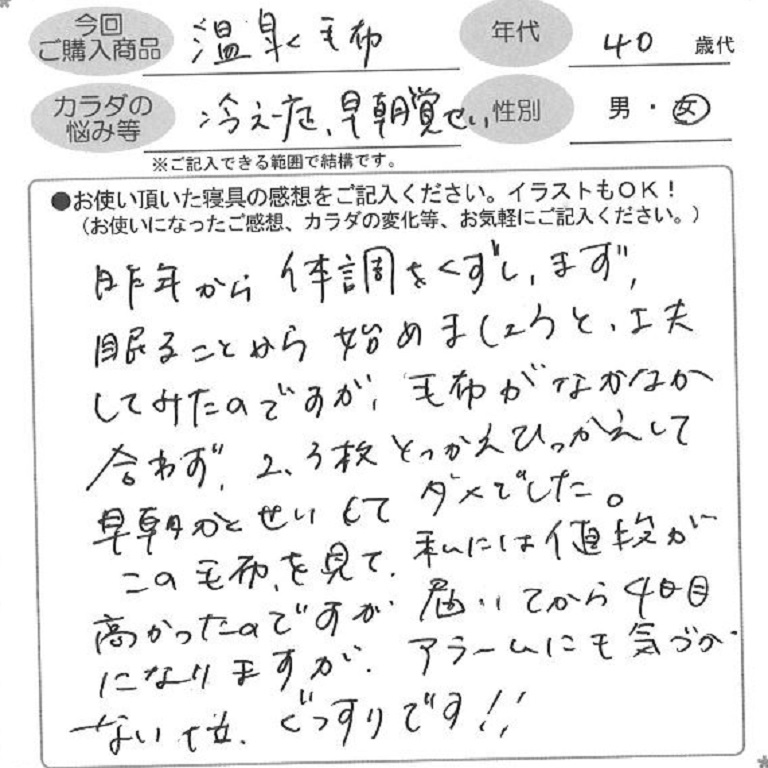 今回
ご購入商品
温泉毛布
年代
40 歳代
カラダの
悩み等
冷え症、早朝覚せい
性別
男・女
※ご記入できる範囲で結構です。
●お使い頂いた寝具の感想をご記入ください。イラストもOK!
(お使いになったご感想、カラダの変化等、お気軽にご記入ください。)
昨年から体調をくずし、まず、
眠ることから始めましょうと、工夫
してみたのですが、毛布がなかなか
合わず、2、3枚とっかえひっかえして
早朝かくせいしてダメでした。
この毛布を見て、私には値段が
高かったのですが届いてから4日目
になりますが、アラームにも気づか
ない位、ぐっすりです!!